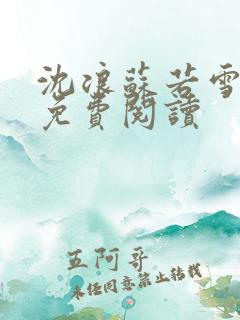 沈浪蘇若雪
免費閱讀
五阿哥
未經同意禁止轉載